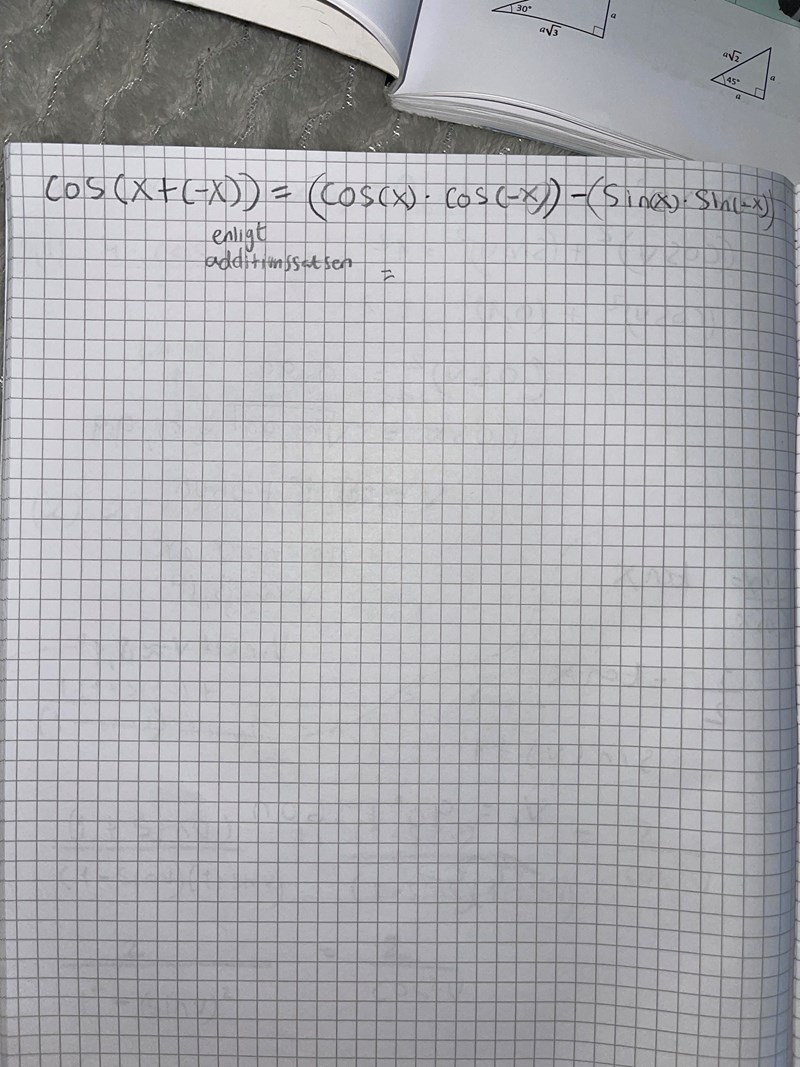 30°
a
a√3
a√2
45°
a
a
cos(x+(-x)) = (cos(x) · cos(-x)) - (sin(x) · sin(-x))
enligt
additionssatsen
=